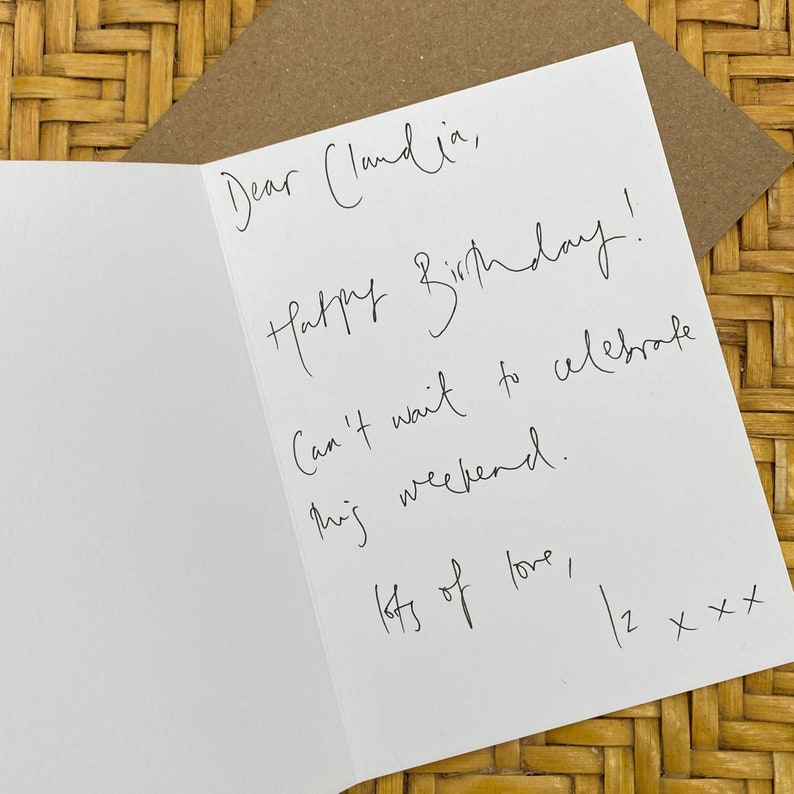 Dear Claudia,
Happy Birthday!
Can't wait to celebrate
this weekend.
lots of love,
Iz x x x